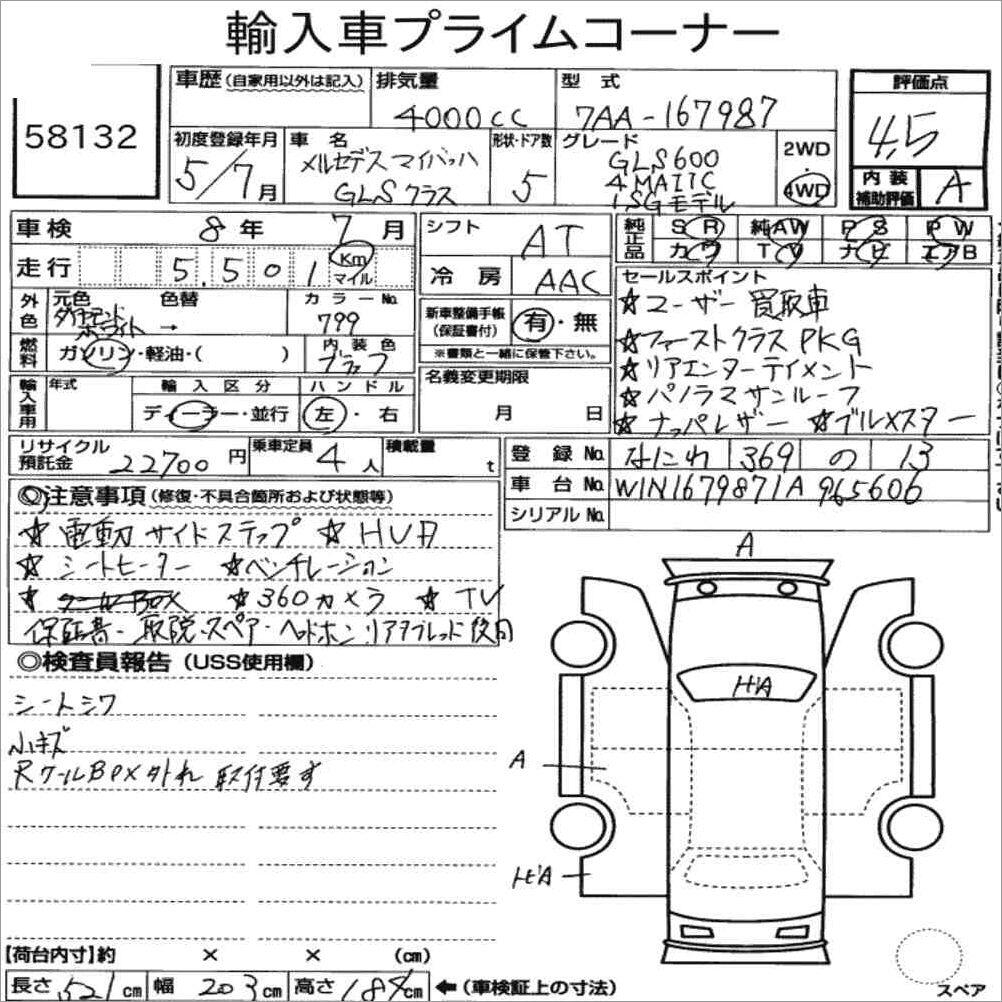 輸入車プライムコーナー
58132
車歴(自家用以外は記入) 排気量 4000cc 型式 7AA-167987 評価点 4.5
初度登録年月 5/7月 車名 メルセデスマイバッハ GLSクラス 形状・ドア数 5 グレード GLS600 4MATIC ISGモデル 2WD 4WD 内装補助評価 A
車検 8年 7月 シフト AT 純正品 SR 純AW PS PW
カワ TV ナビ エアB
走行 5,501 Km マイル 冷房 AAC
外色 元色 ダイヤモンドホワイト → 色替 カラーNo. 799
新車整備手帳(保証書付) 有・無
※書類と一緒に保管下さい。
燃料 ガソリン・軽油・( ) 内装色 ブラック
輸入車用 年式 輸入区分 ディーラー・並行 ハンドル 左・右
名義変更期限 月 日
セールスポイント
☆ユーザー買取車
☆ファーストクラスPKG
☆リアエンターテイメント
☆パノラマサンルーフ
☆ナッパレザー ☆ブルメスター
リサイクル預託金 22700円 乗車定員 4人 積載量 t
登録No. なにわ 369 の 13
車台No. W1N1679871A965606
シリアルNo.
◎注意事項(修復・不具合箇所および状態等)
☆電動サイドステップ ☆HUD
☆シートヒーター ☆ベンチレーション
☆クールBOX ☆360カメラ ☆TV
保証書・取説・スペアー・ヘッドホン・リアタブレット後日
◎検査員報告(USS使用欄)
シートシワ
小キズ
RクールBOX外れ 取付要す
A
ﾋﾞA
A
ﾋﾞA
【荷台内寸】約 × × (cm)
長さ 521cm 幅 203cm 高さ 184cm ←(車検証上の寸法)
スペア